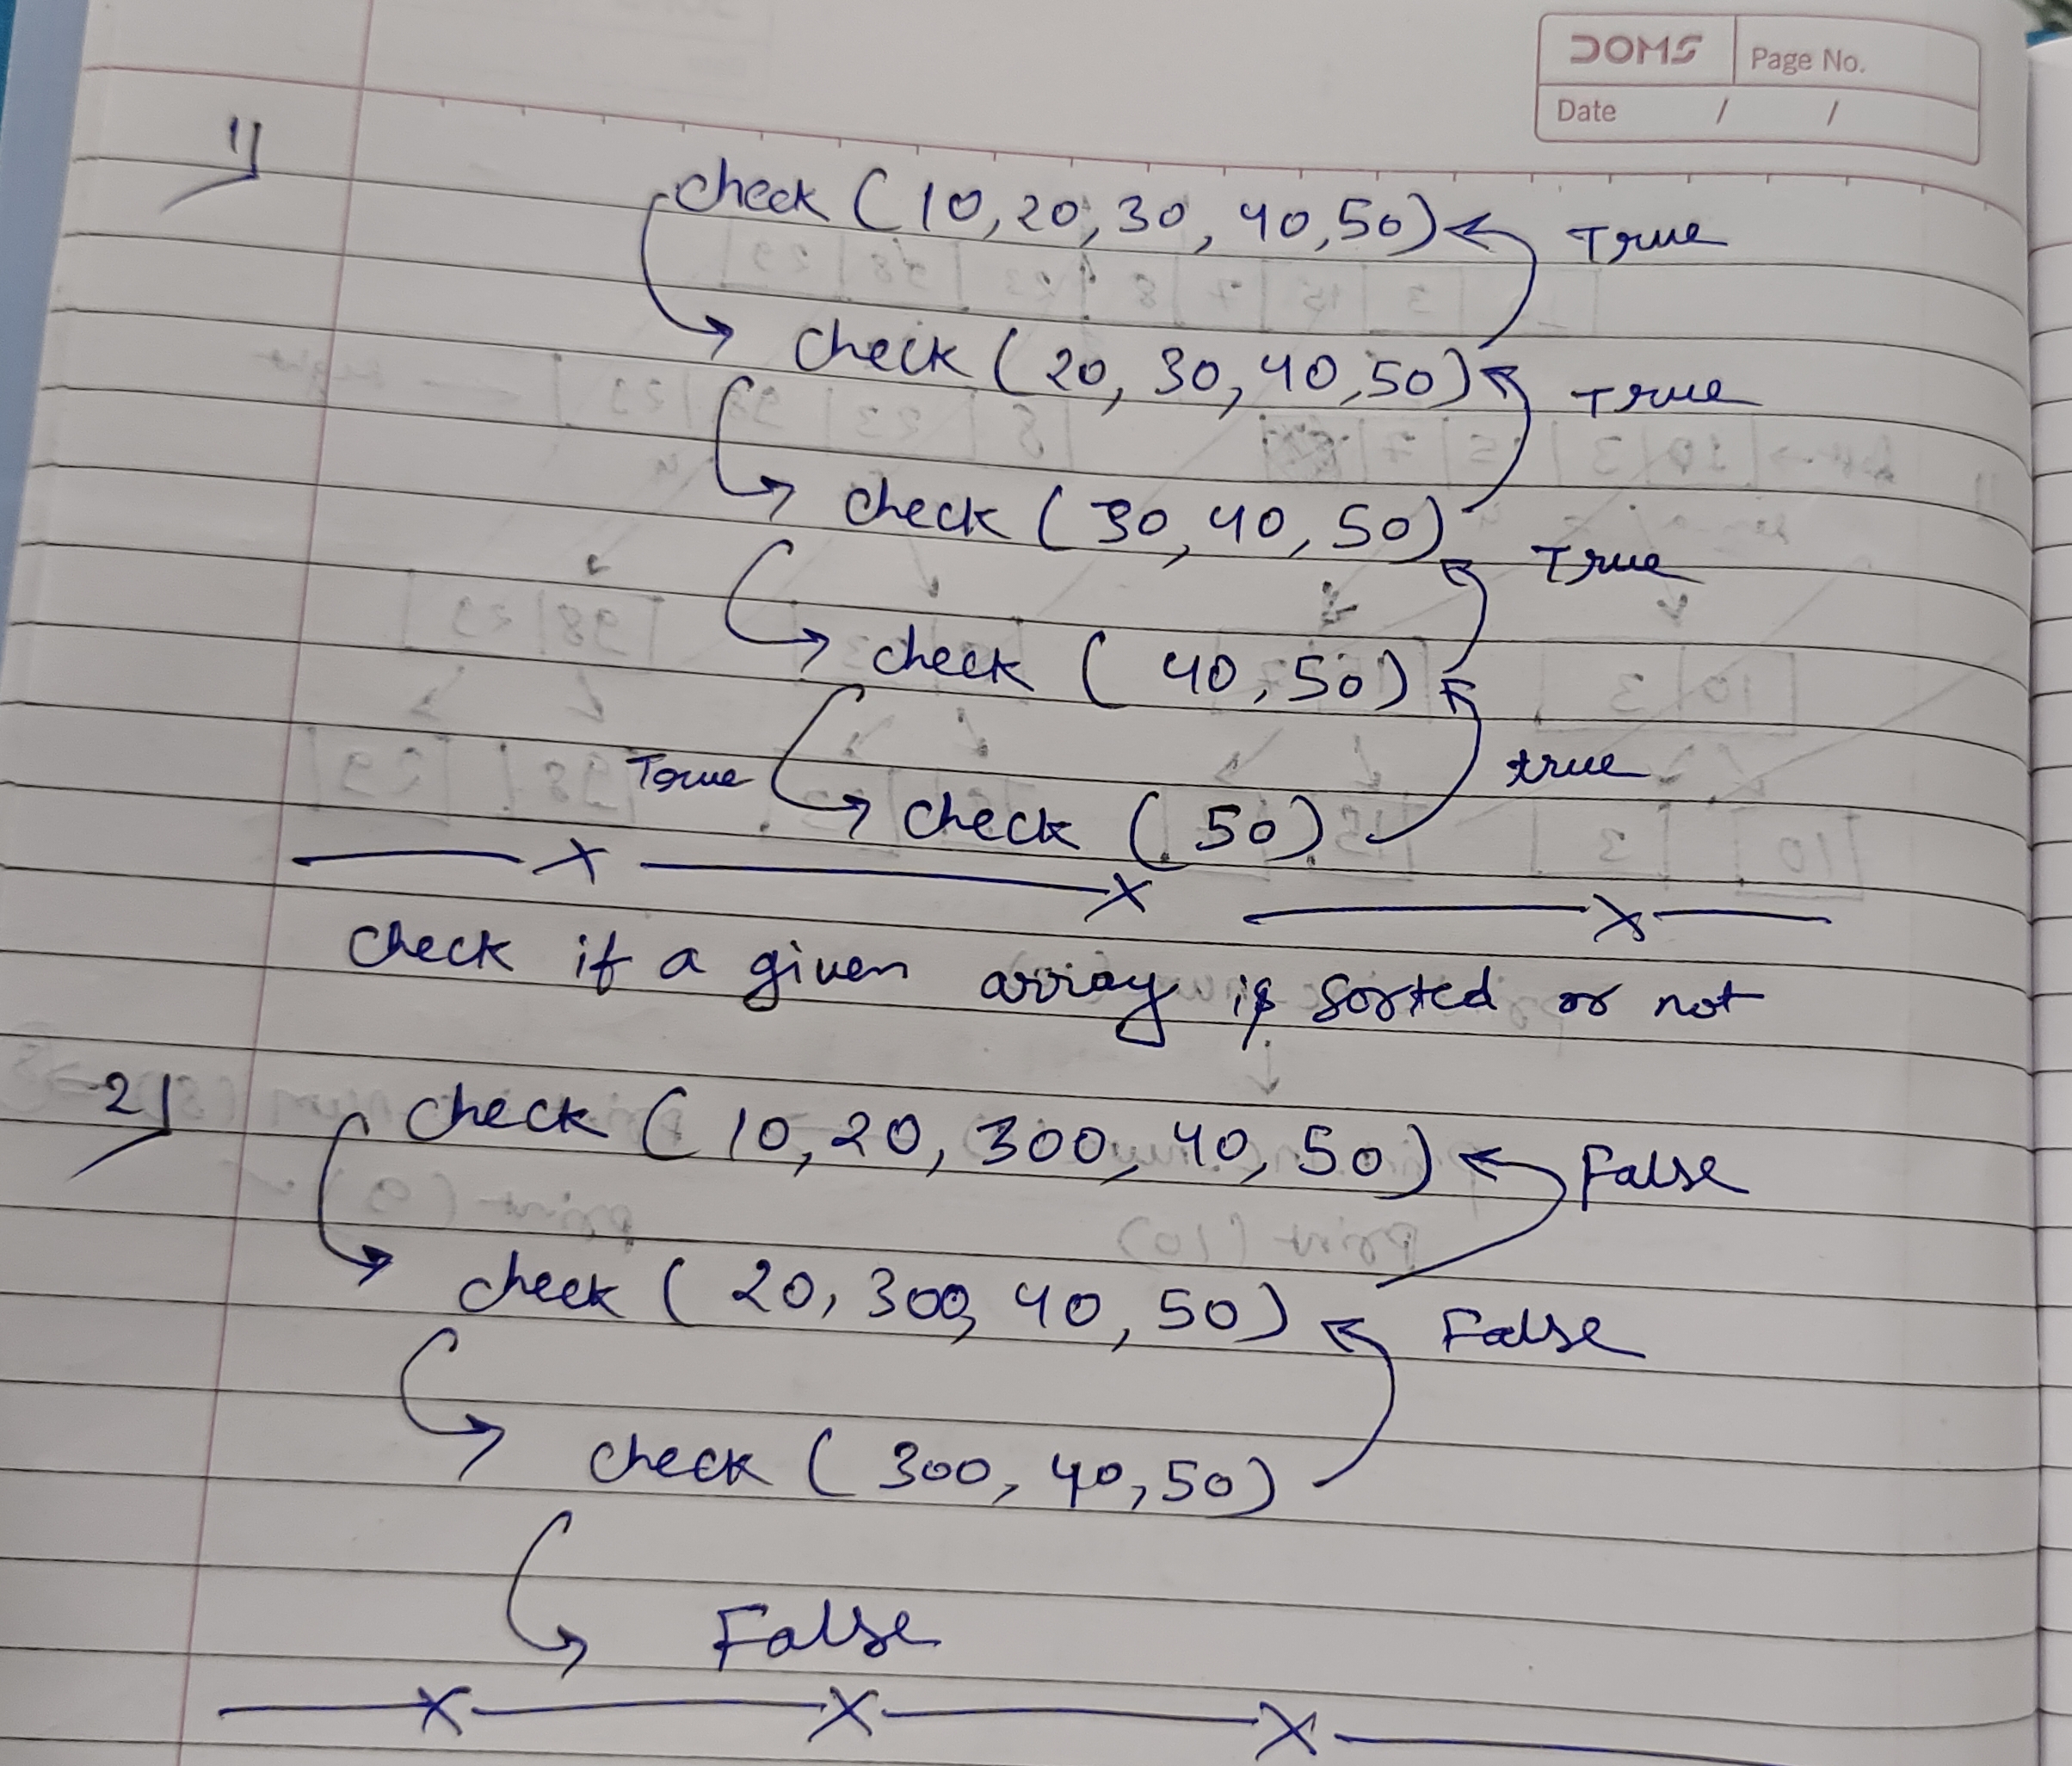 DOMS Page No.
Date / /
1)
check (10, 20, 30, 40, 50) True
check (20, 30, 40, 50) True
check (30, 40, 50) True
check (40, 50)
True true
check (50)
check if a given array is sorted or not
2)
check (10, 20, 300, 40, 50) False
check (20, 300, 40, 50) False
check (300, 40, 50)
False